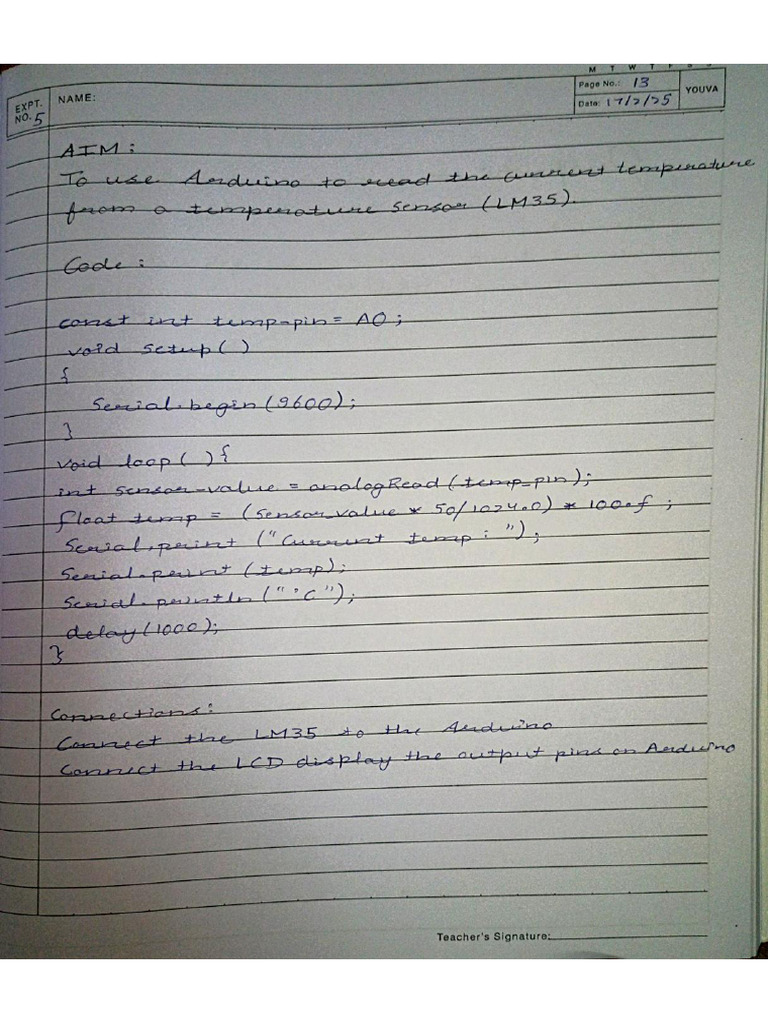 M T W T F S S
EXPT. NO. 5
NAME:
Page No.: 13
Date: 17/2/25
YOUVA
AIM :
To use Arduino to read the current temperature
from a temperature sensor (LM35).
Code :
const int temp-pin = A0 ;
void setup ( )
{
Serial.begin (9600);
}
void loop ( ) {
int sensor_value = analogRead (temp_pin);
float temp = (sensor_value * 50/1024.0) * 100.f ;
Serial.print ("Current temp : ");
Serial.print (temp);
Serial.println ("°C");
delay (1000);
}
Connections :
Connect the LM35 to the Arduino
Connect the LCD display the output pins on Arduino
Teacher's Signature: